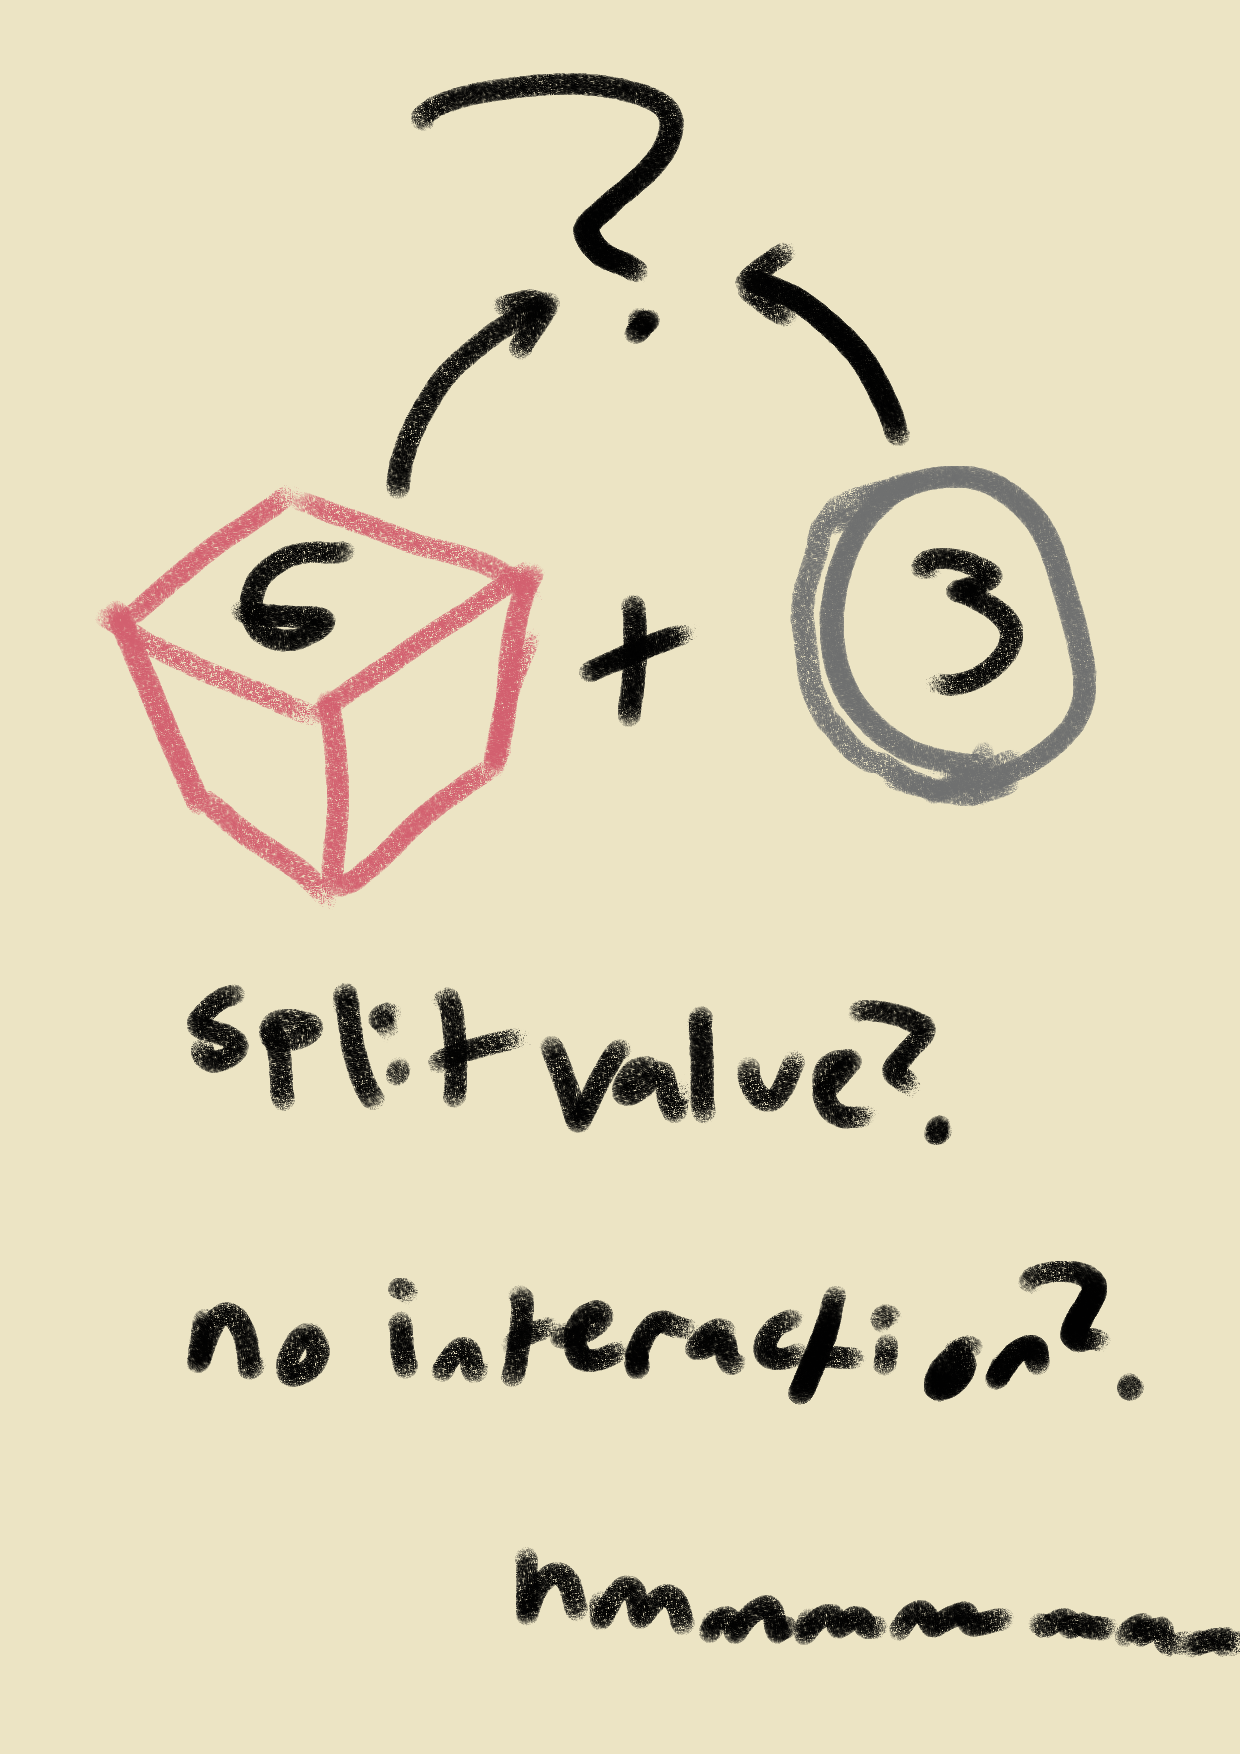 ?
6 + 3
split value?
no interaction?
hmmmmmmmm